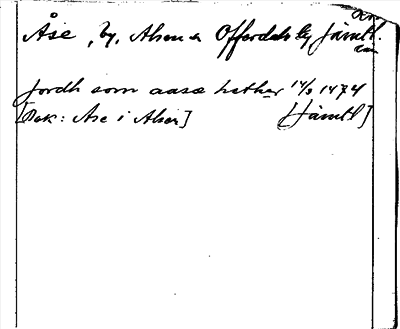 Åse, by, Alsen s Offerdals tg Jämtl.
Jordh som aasa hether 14/3 1474
[Bak: Åse i Alsen] [Jämtl]